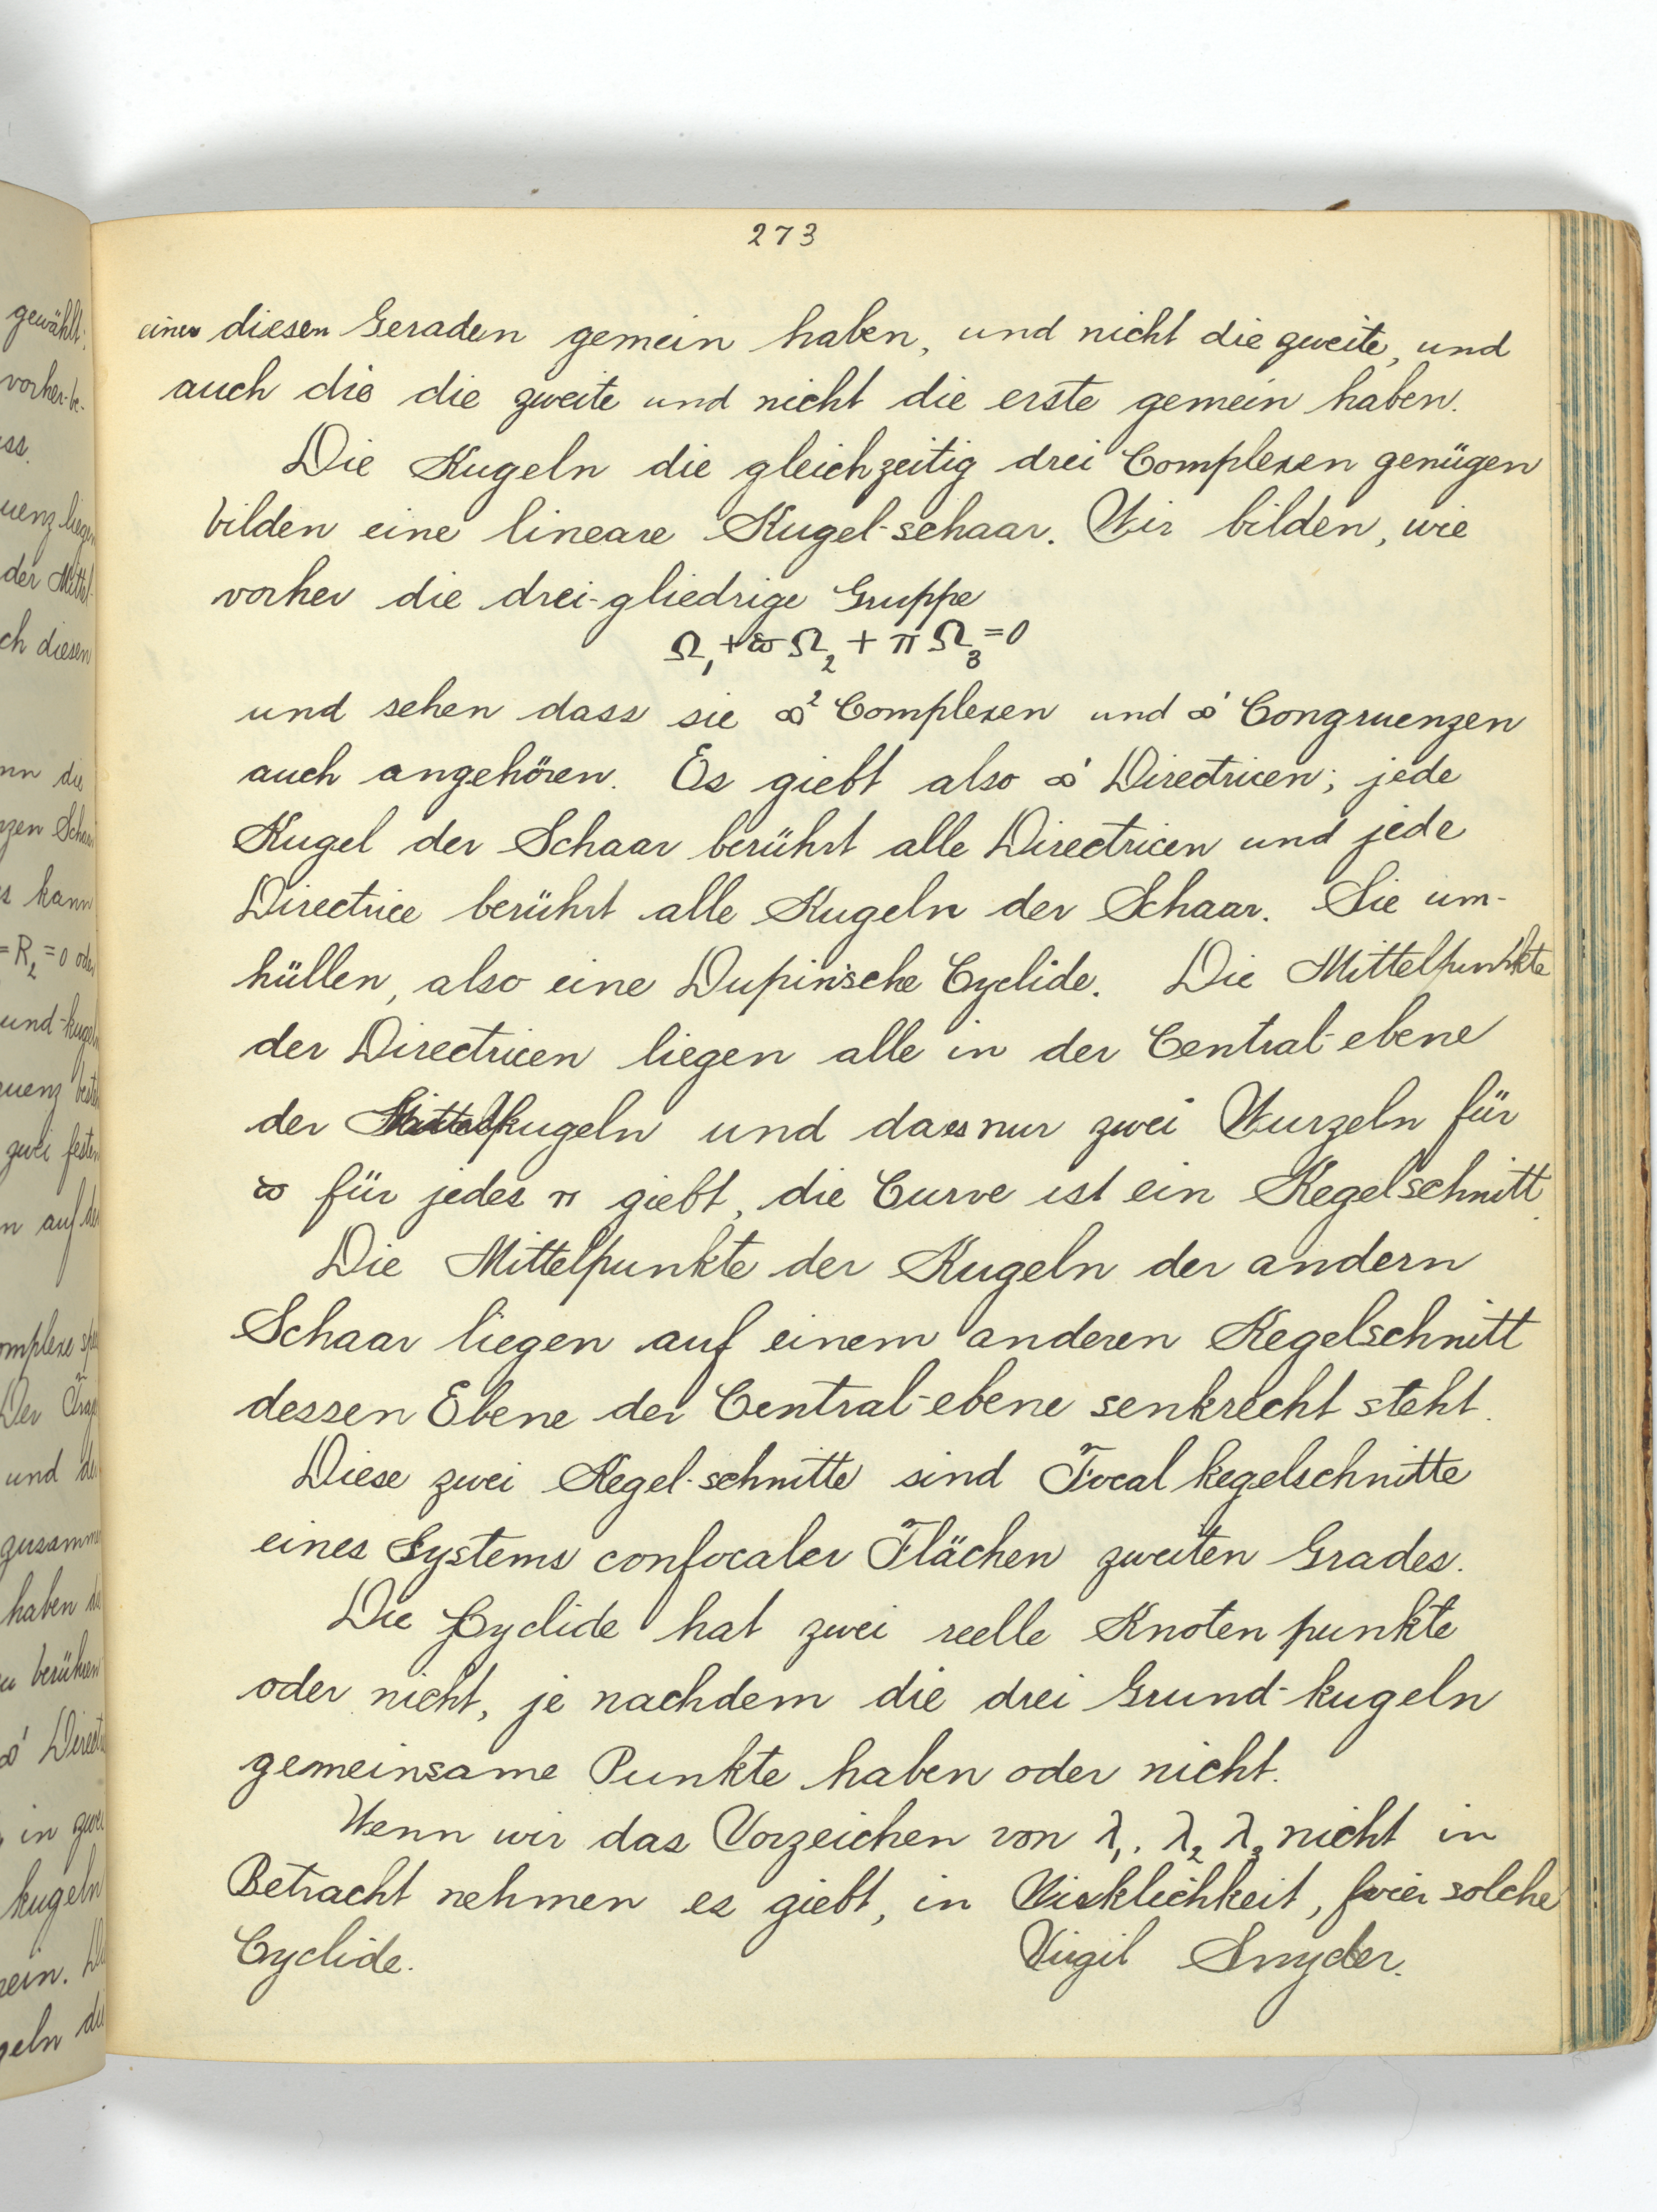 273
einer diesen Geraden gemein haben, und nicht die zweite, und
auch die die zweite und nicht die erste gemein haben.
Die Kugeln die gleichzeitig drei Complexen genügen
bilden eine lineare Kugel-schaar. Wir bilden, wie
vorher die drei-gliedrige Gruppe
Ω₁ + ϖ Ω₂ + π Ω₃ = 0
und sehen dass sie ∞² Complexen und ∞' Congruenzen
auch angehören. Es giebt also ∞' Directricen; jede
Kugel der Schaar berührt alle Directricen und jede
Directrice berührt alle Kugeln der Schaar. Sie um-
hüllen, also eine Dupin'sche Cyclide. Die Mittelpunkte
der Directricen liegen alle in der Central-ebene
der kugeln und da es nur zwei Wurzeln für
ϖ für jedes π giebt, die Curve ist ein Kegelschnitt.
Die Mittelpunkte der Kugeln der andern
Schaar liegen auf einem anderen Kegelschnitt
dessen Ebene der Central-ebene senkrecht steht.
Diese zwei Kegel-schnitte sind Focal kegelschnitte
eines Systems confocaler Flächen zweiten Grades.
Die Cyclide hat zwei reelle Knoten punkte
oder nicht, je nachdem die drei Grund-kugeln
gemeinsame Punkte haben oder nicht.
Wenn wir das Vorzeichen von λ₁. λ₂ λ₃ nicht in
Betracht nehmen es giebt, in Wirklichkeit, vier solche
Cyclide. Virgil Snyder.